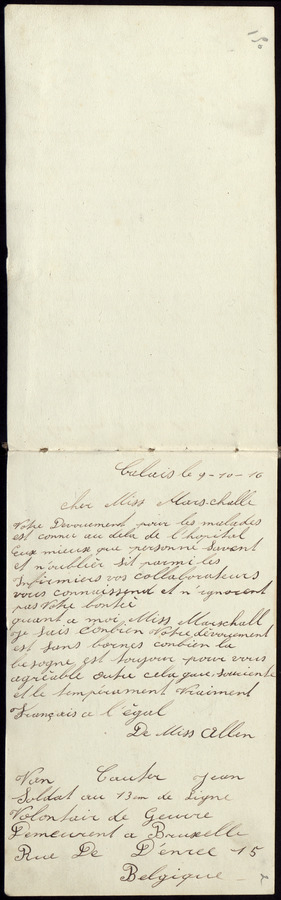 Calais le 9-10-16
cher Miss Marschalle
Votre Devouement pour les malades
est connu au dela de l'hopital
Eux mieux que personne Savent
et n'oublier sit parmi les
Infirmiers vos collaborateurs
vous connaissend et n'ignorent
pas Votre bonté
quant a moi Miss Marschall
je Suis Conbien Votre dévouement
est Sans bornes conbien la
besogne est toujour pour vous
agréable outre cela gaie, Souciente
et le tempérament Vraiment
Français a l'égal
De Miss Allen
Van Cauter Jean
Soldat au 13em de Ligne
Volontair de Geuvre
Demeurent a Bruxelle
Rue De D'enree 15
Belgique